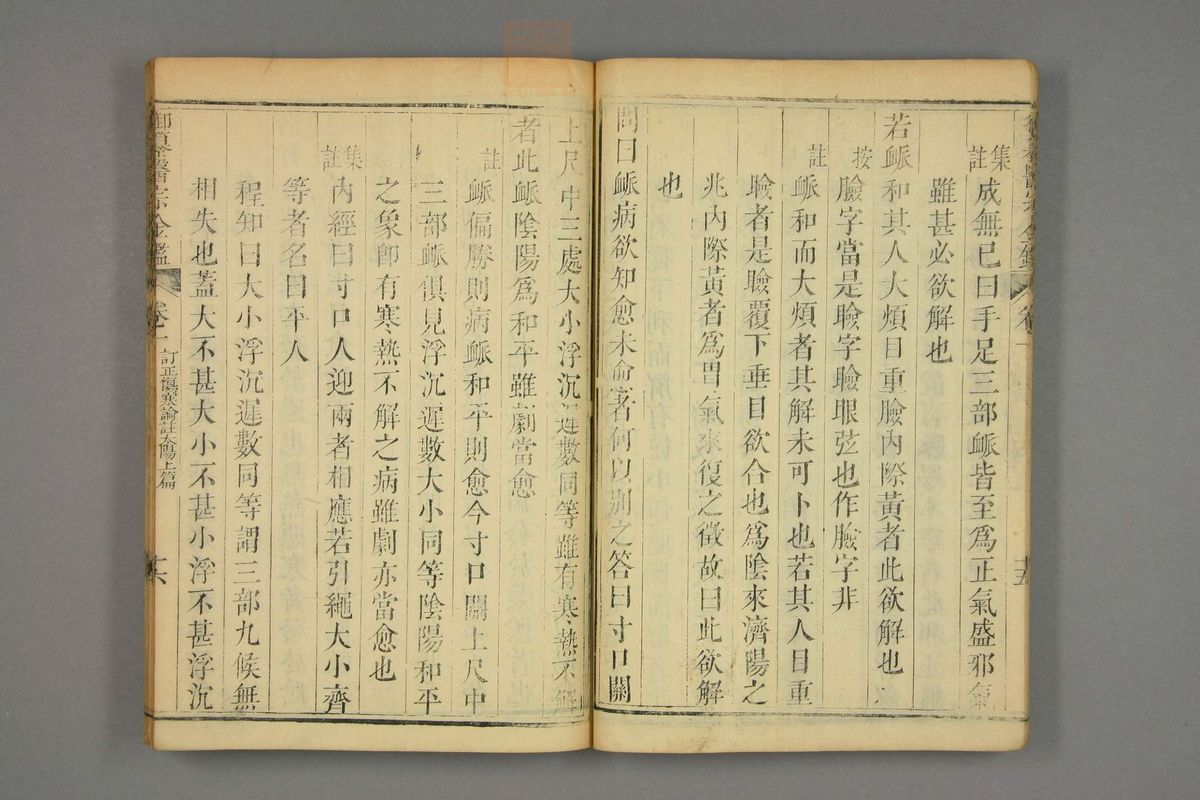 集註
成無已曰手足三部䘑皆至爲正氣盛邪氣
雖甚必欲解也
若䘑和其人大煩目重臉內際黃者此欲解也
按
臉字當是瞼字瞼眼弦也作臉字非
註
䘑和而大煩者其解未可卜也若其人目重
瞼者是瞼覆下垂目欲合也爲陰來濟陽之
兆內際黃者爲胃氣來復之徵故曰此欲解
也
問曰䘑病欲知愈未愈者何以别之答曰寸口關
上尺中三處大小浮沉遲數同等雖有寒熱不解
者此䘑陰陽爲和平雖劇當愈
註
䘑偏勝則病䘑和平則愈今寸口關上尺中
三部䘑俱見浮沉遲數大小同等陰陽和平
之象卽有寒熱不解之病雖劇亦當愈也
集註
內經曰寸口人迎兩者相應若引繩大小齊
等者名曰平人
程知曰大小浮沉遲數同等謂三部九候無
相失也蓋大不甚大小不甚小浮不甚浮沉
御纂醫宗金鑑
卷一
訂正傷寒論註太陽上篇